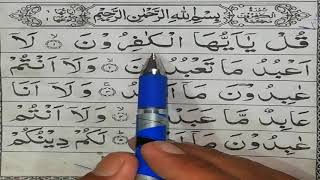 بِسْمِ اللّٰهِ الرَّحْمٰنِ الرَّحِيْمِ
قُلْ يٰٓاَيُّهَا الْكٰفِرُوْنَ ۝١ لَآ
اَعْبُدُ مَا تَعْبُدُوْنَ ۝٢ وَلَآ اَنْتُمْ
عٰبِدُوْنَ مَآ ۝٣ وَلَآ اَنَا
عَابِدٌ مَّا عَبَدْتُّمْ ۝٤ وَلَآ اَنْتُمْ
عٰبِدُوْنَ مَآ لَكُمْ دِيْنُكُمْ